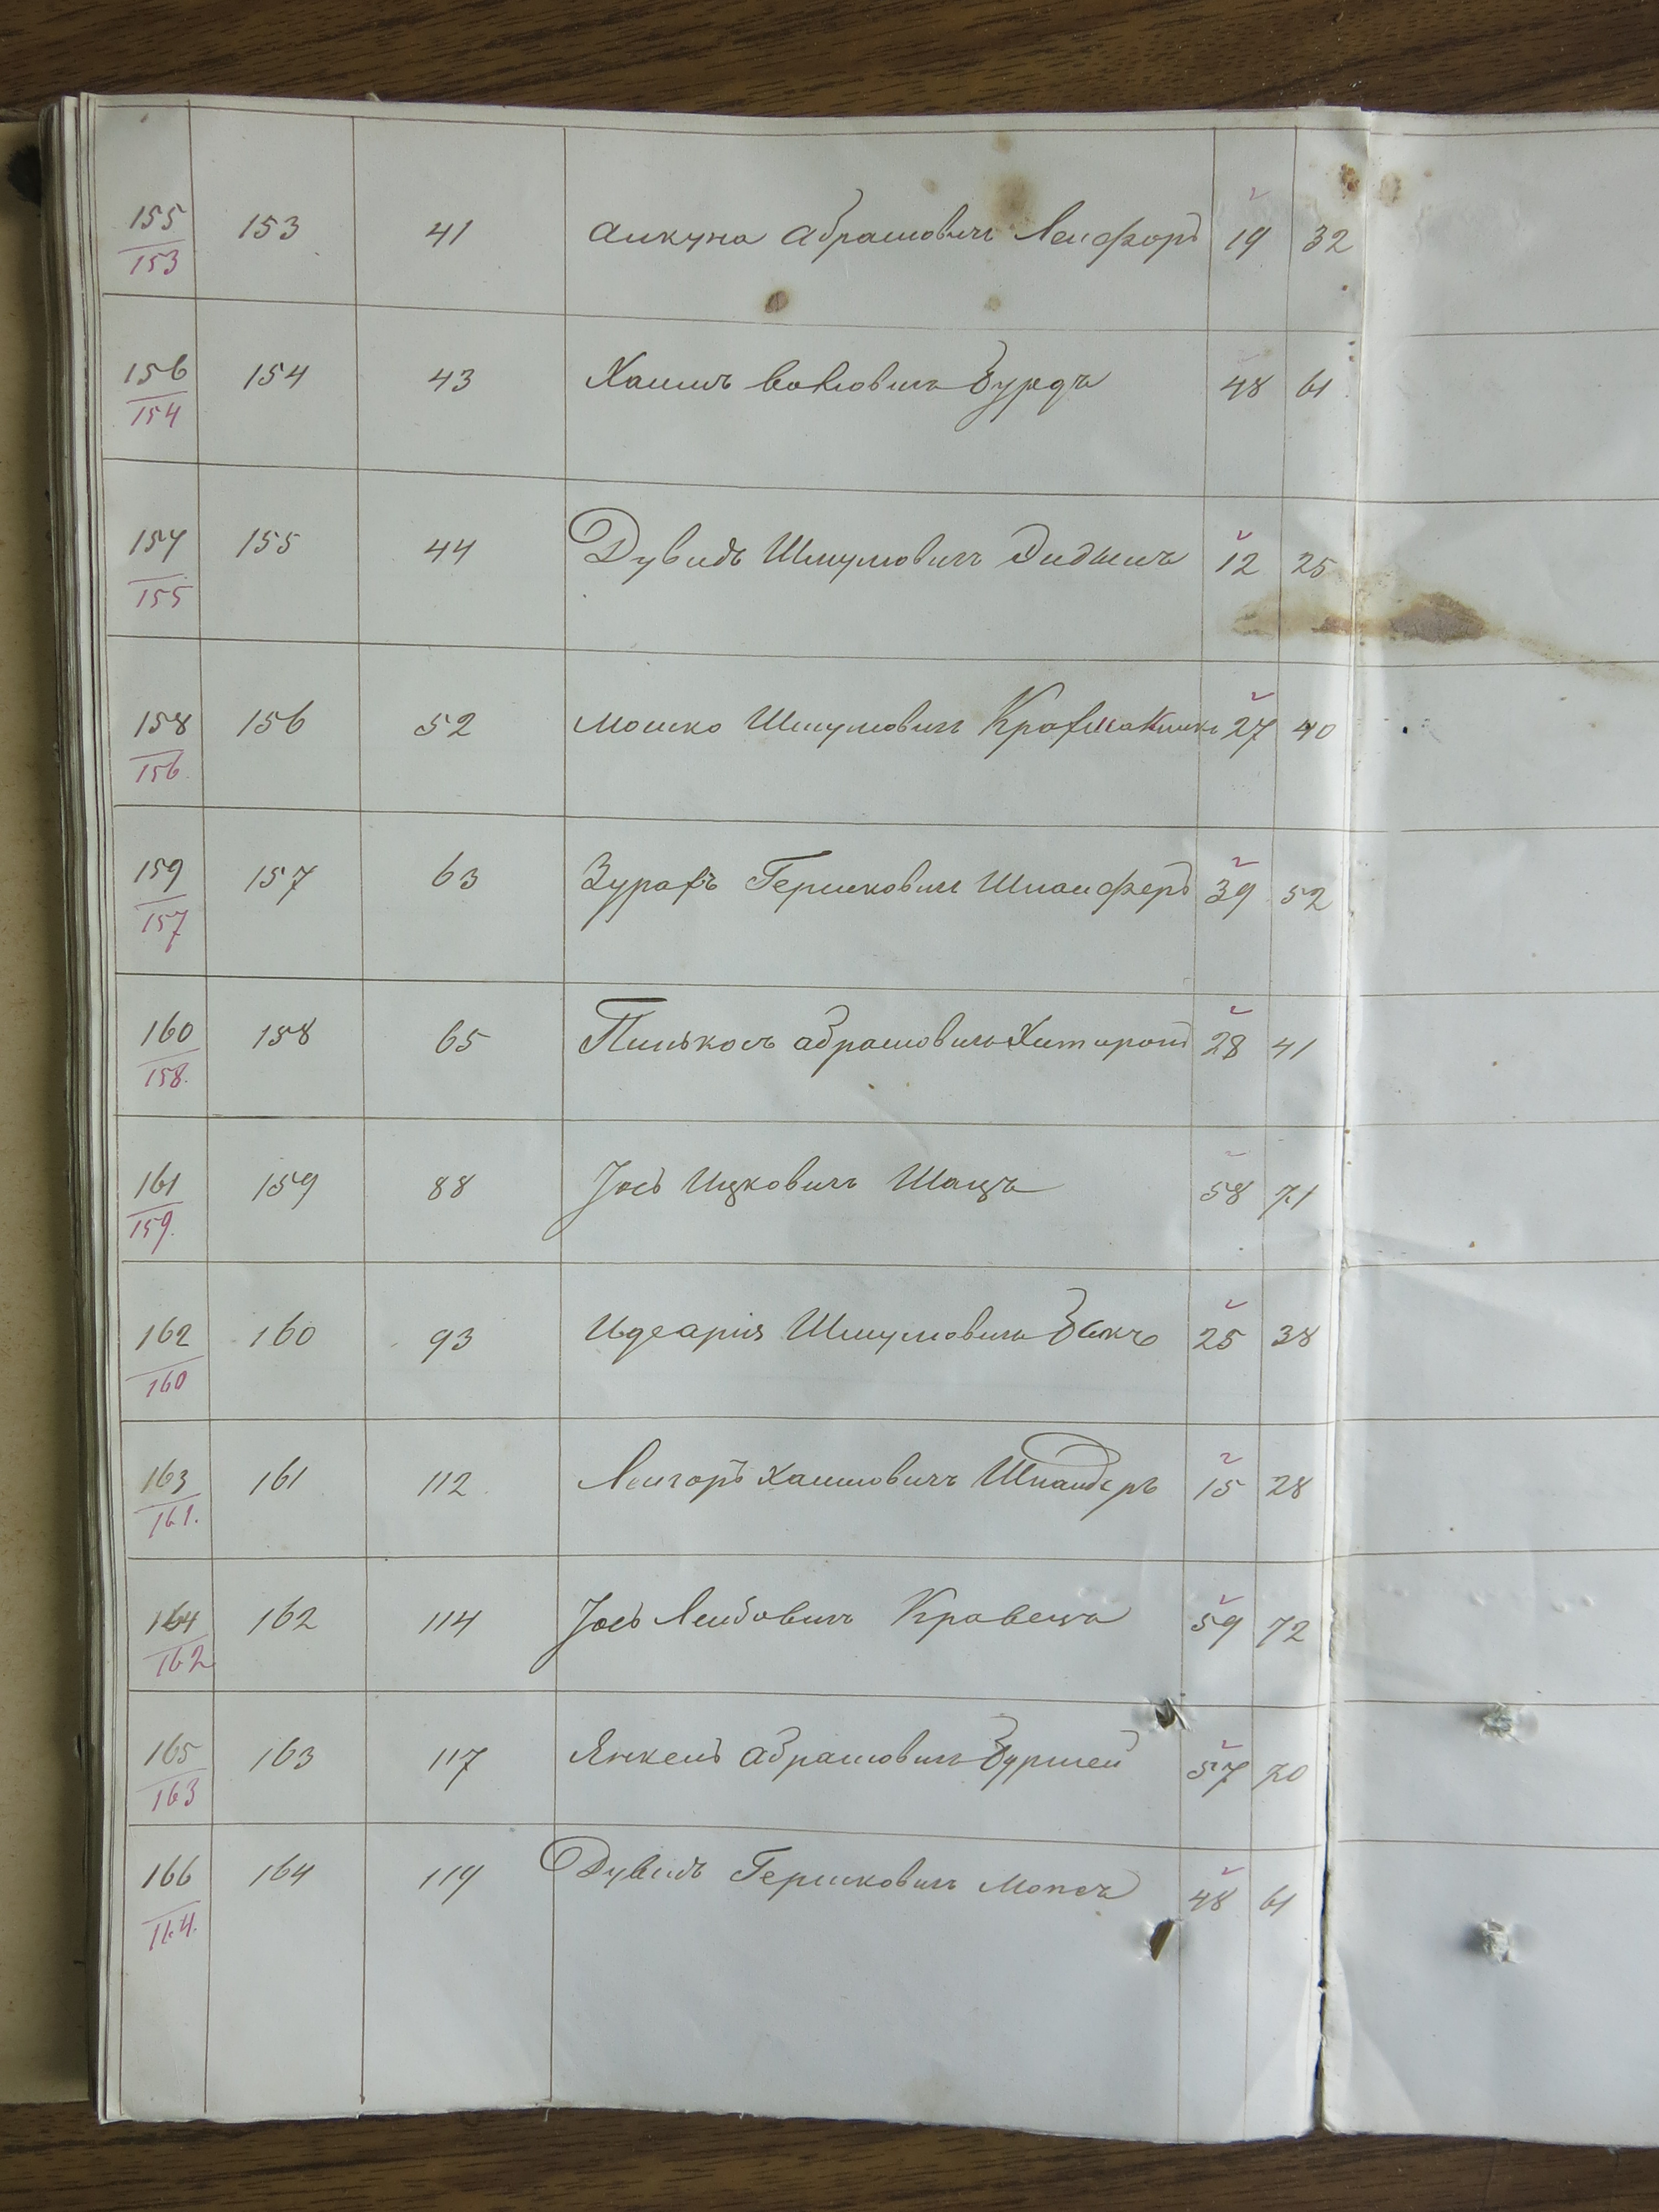 155 153 41 Анкуна Абрамовичъ Лейфоръ 19 32
153
156 154 43 Хаимъ Вольковичъ Бурдъ 48 61
154
157 155 44 Дувидъ Шмулювичъ 12 25
155
158 156 52 Мошко Шмулювичъ 27 40
156.
159 157 63 Зурахъ Гершковичъ Шпайферъ 39 52
157
160 158 65 Пинькасъ Абрамовичъ 28 41
158.
161 159 88 Іосъ Ицковичъ Шацъ 58 71
159.
162 160 93 Шмулювичъ Закъ 25 38
160
163 161 112 Хаимовичъ Шнайдеръ 15 28
161.
164 162 114 Іосъ Лейбовичъ Кравецъ 59 72
162
165 163 117 Янкель Абрамовичъ 57 70
163
166 164 119 Дувидъ Гершковичъ Мопсъ 48 61
164.